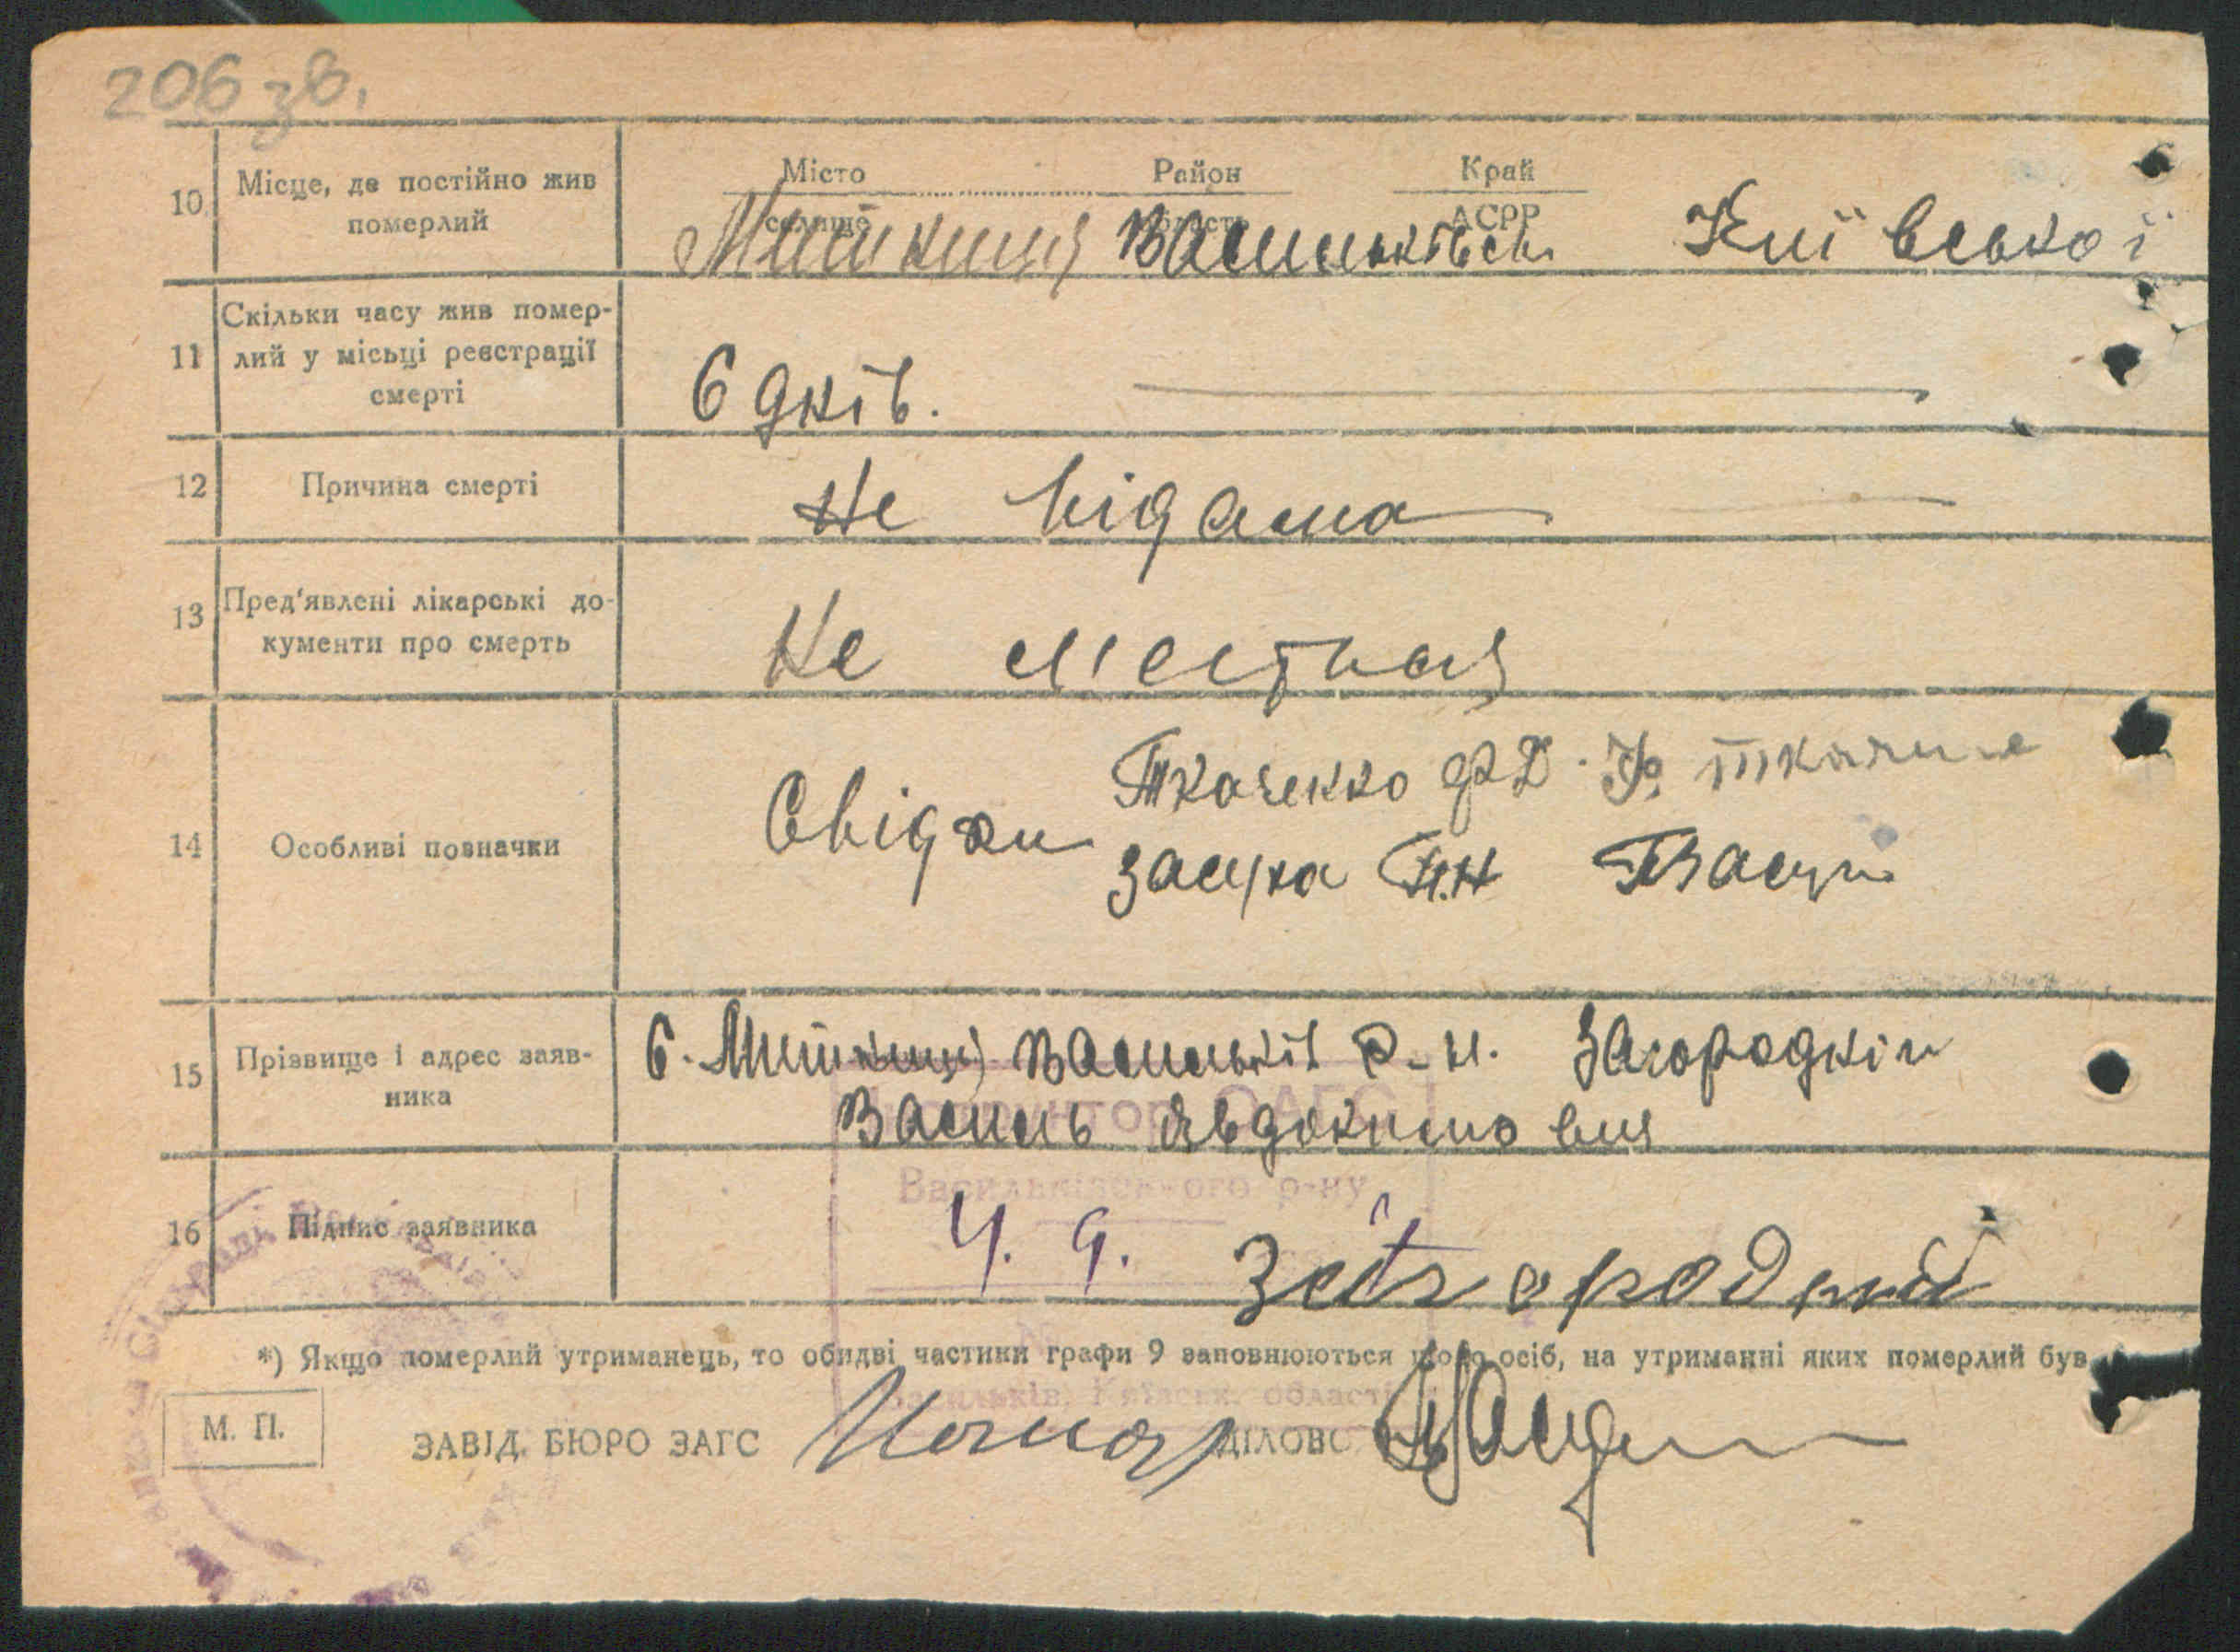 206 зв.
10 Місце, де постійно жив померлий
Місто Район Край
селище область АСРР
Митниця Васильківськ Київської
11 Скільки часу жив помер-
лий у місьці реєстрації
смерті
6 днів.
12 Причина смерті
Не відома
13 Пред'явлені лікарські до-
кументи про смерть
Не
14 Особливі позначки
Свідки Ткаченко Ф Д.
Засуха Н.Н
15 Прізвище і адрес заяв-
ника
С. Митниця Васильків р-н. Загородній
Василь Явдокимович
Інспектор ОАГС
Васильківського р-ну
16 Підпис заявника
Ч. 9. Загородній
*) Якщо померлий утриманець, то обидві частини графи 9 заповнюються щодо осіб, на утриманні яких померлий був
Васильків, Київськ. області
М. П. ЗАВІД. БЮРО ЗАГС ДІЛОВО